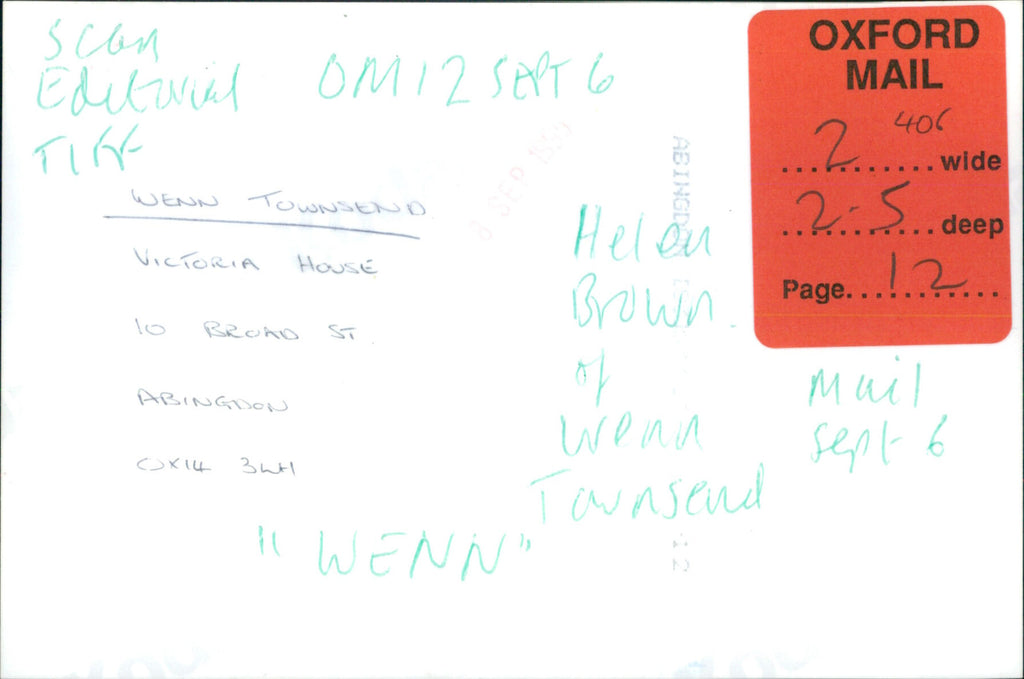 Scan
Editorial
TIFF
OM12 SEPT 6
OXFORD
MAIL
2 406
...........wide
2.5
...........deep
Page. 12
8 SEP
WENN TOWNSEND
VICTORIA HOUSE
10 BROAD ST
ABINGDON
OX14 3LH
Helen
Brown
of
Wenn
Townsend
Mail
Sept 6
"WENN"
ABINGDON
12